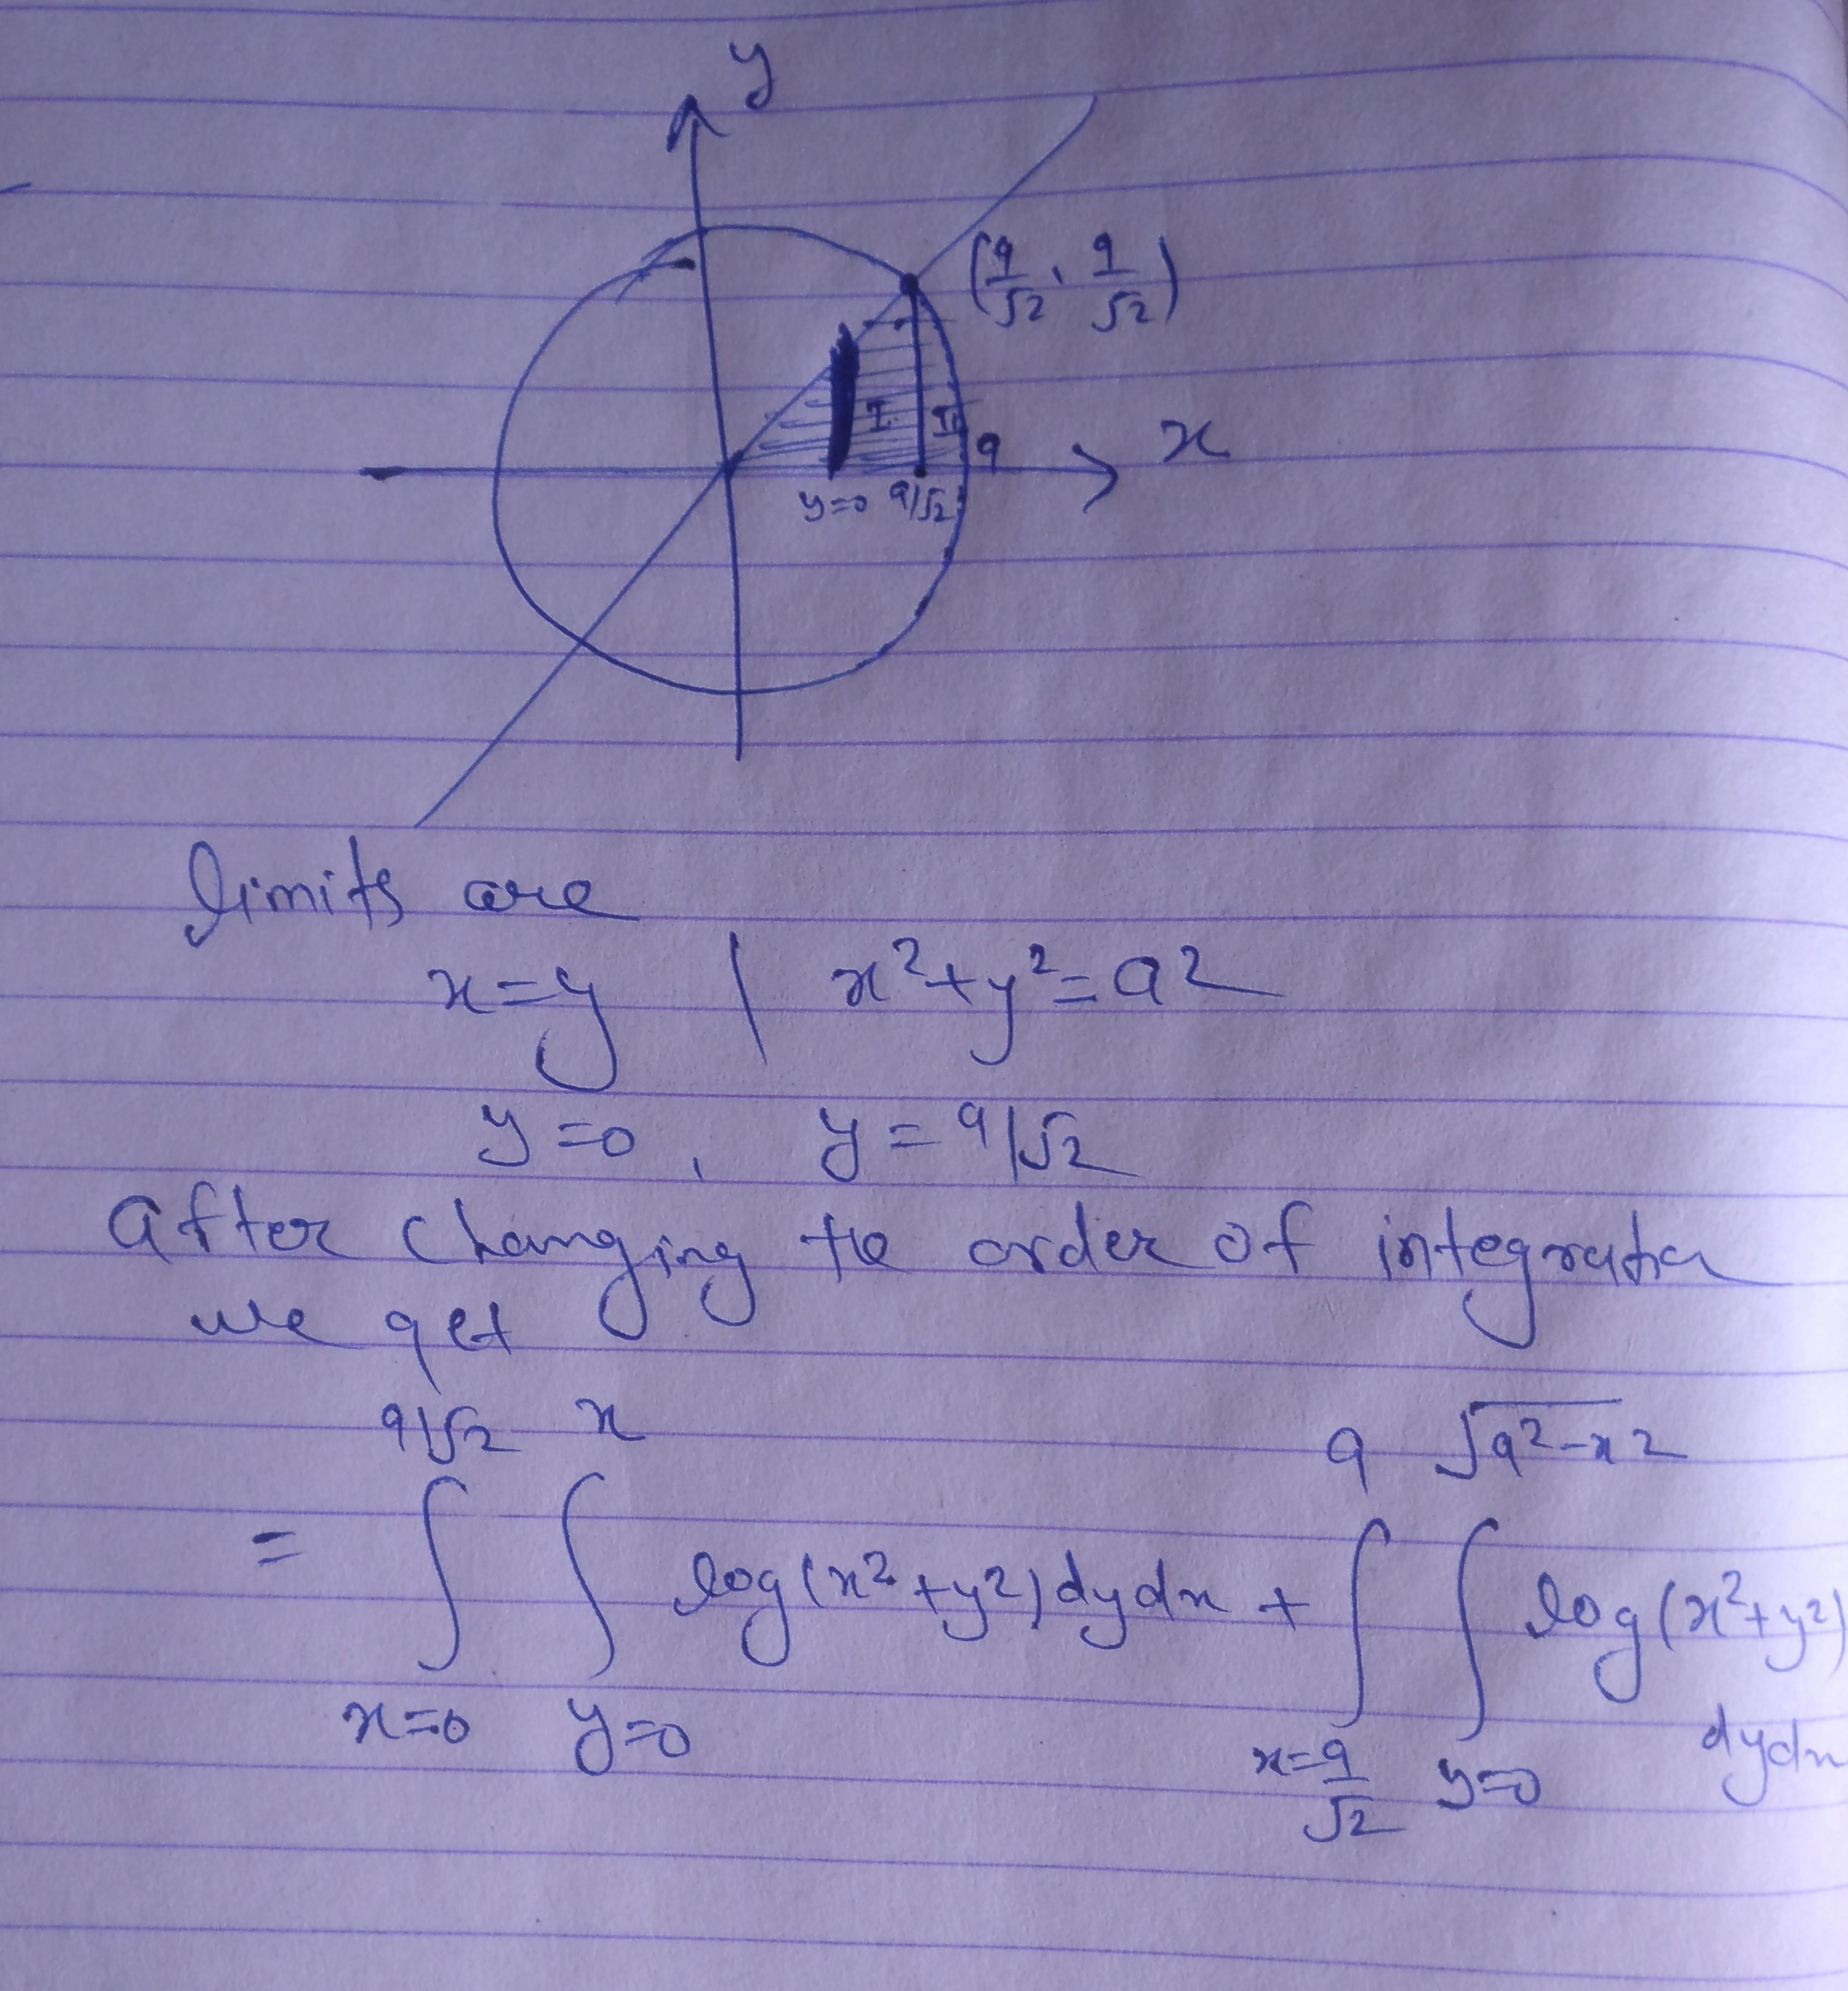 y
(a/√2, a/√2)
I II
a
x
y=0 a/√2
limits are
x=y | x²+y²=a²
y=0, y=a/√2
After changing the order of integration
we get
a/√2 x a √a²-x²
= ∫ ∫ log(x²+y²)dydx + ∫ ∫ log(x²+y²)
x=0 y=0 x=a/√2 y=0 dydx